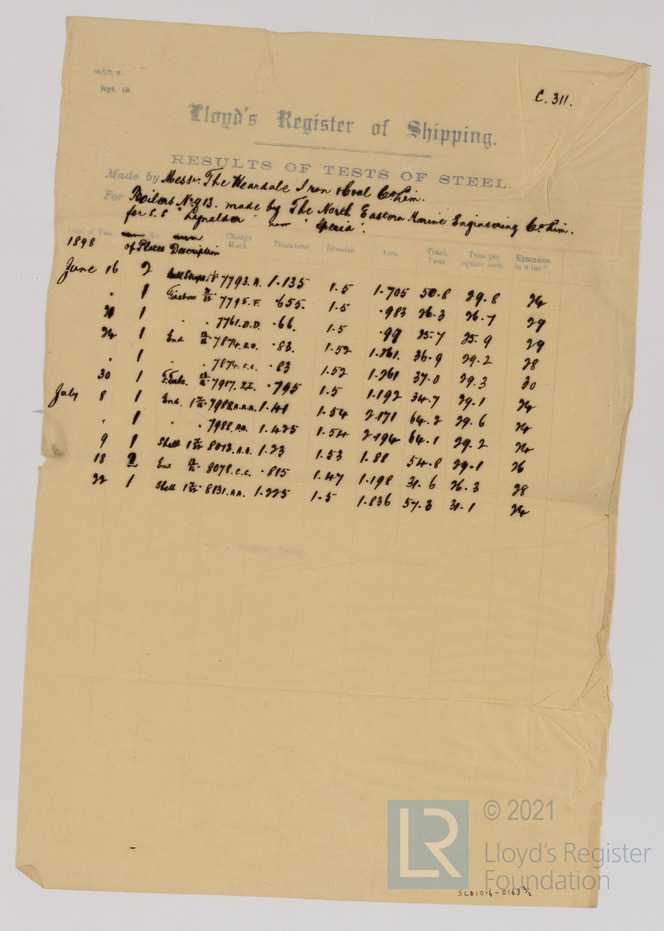 Sept. 98
C. 311.
Lloyd's Register of Shipping.
RESULTS OF TESTS OF STEEL.
Made by Messrs. The Weardale Iron & Coal Co Lim.
For Boilers No 913. made by The North Eastern Marine Engineering Co Lim.
for S.S "
" now "
".
1898 No. of Plates Description Charge Mark. Thickness Breadth Area Total Tons Tons per square inch Extension in 8 Ins.
June 16 2 7793.A. 1.135 1.5 1.705 50.8 29.8 24
" 1 7795.F. .655. 1.5 .983 26.3 26.7 29
1 " 7761.D.D. .66. 1.5 .99 25.7 25.9 29
24 1 End 7874.A.A. .83. 1.52 1.261 36.9 29.2 28
" 1 " 7874.C.C. .83 1.52 1.261 37.0 29.3 30
30 1 7917. .795 1.5 1.192 34.7 29.1 24
July 8 1 End 7988.A.A.A. 1.41 1.54 2.171 64.2 29.6 24
" 1 " 7988.A.A. 1.425 1.54 2.194 64.1 29.2 24
9 1 Shell 8013.A.A. 1.23 1.53 1.88 54.8 29.1 26
18 2 End 8078.C.C. .815 1.47 1.198 31.6 26.3 28
22 1 Shell 8131.A.A. 1.225 1.5 1.836 57.3 31.1 24
© 2021
LR
Lloyd's Register
Foundation
SLB1016-0163